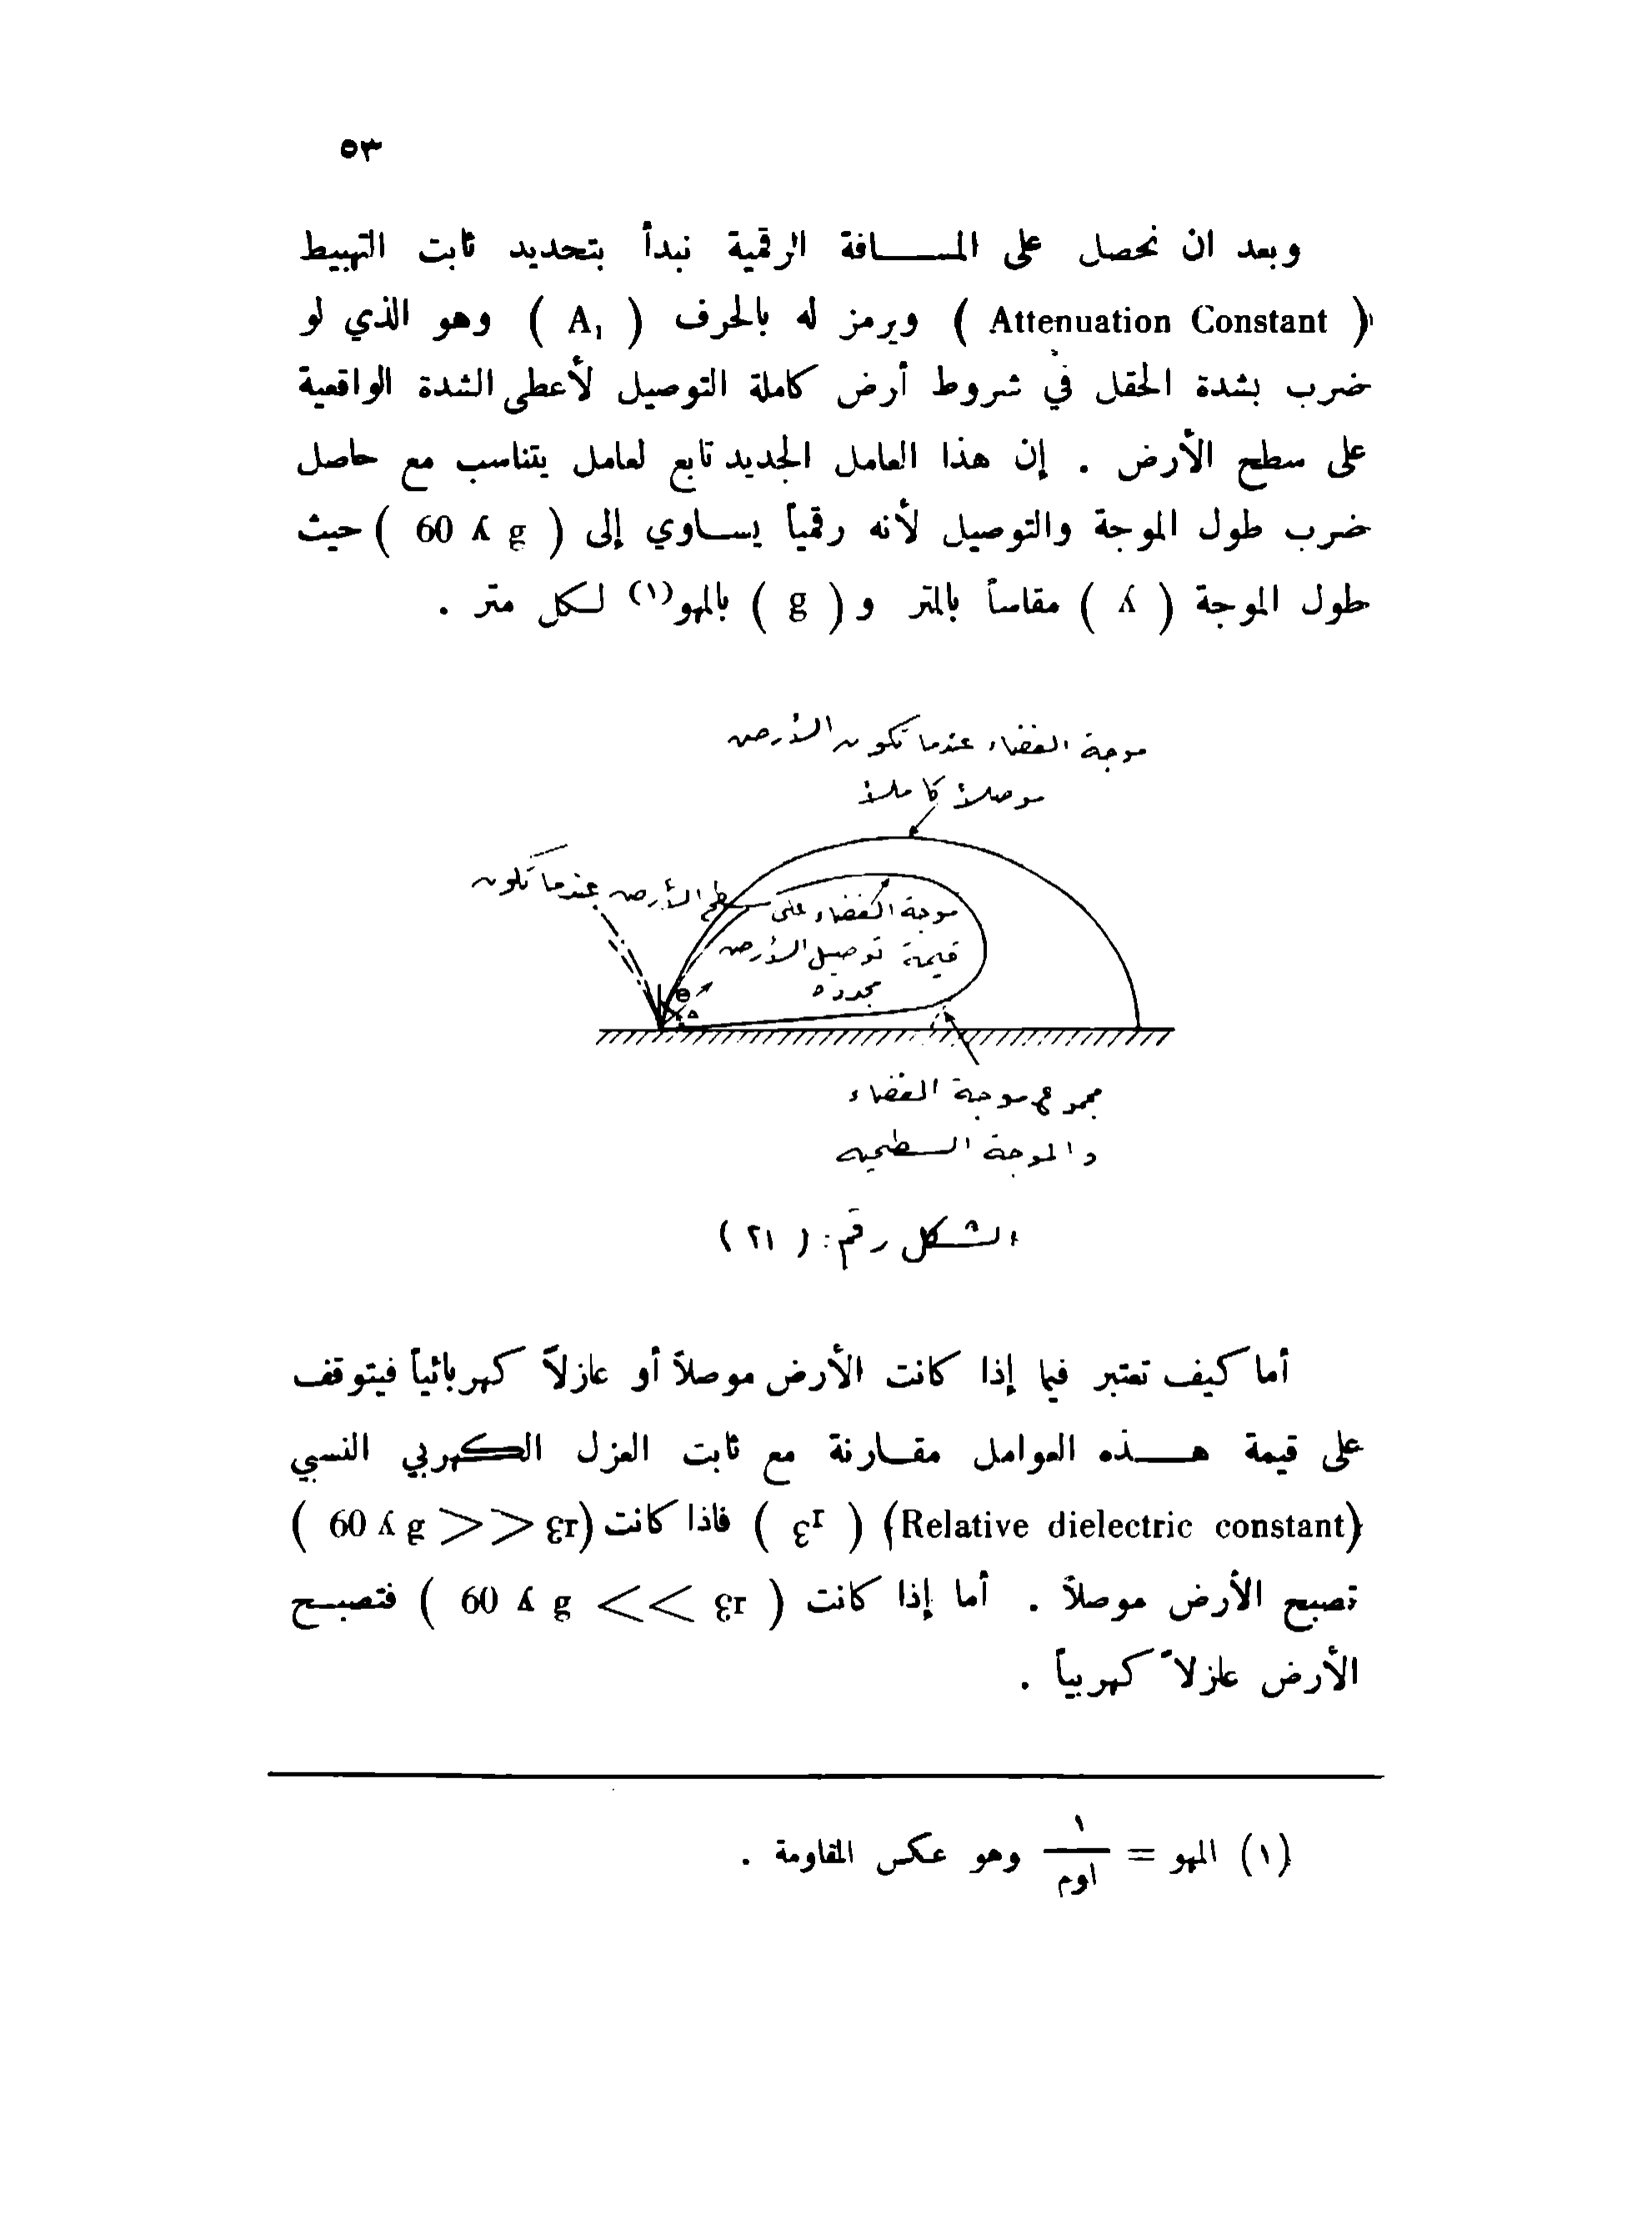 ٥٣
وبعد ان نحصل على المسافة الرقمية نبدأ بتحديد ثابت التهبيط
( Attenuation Constant ) ويرمز له بالحرف ( A₁ ) وهو الذي لو
ضرب بشدة الحقل في شروط أرض كاملة التوصيل لأعطى الشدة الواقعية
على سطح الأرض . إن هذا العامل الجديد تابع لعامل يتناسب مع حاصل
ضرب طول الموجة والتوصيل لأنه رقمياً يساوي إلى ( 60 ʎ g ) حيث
طول الموجة ( ʎ ) مقاساً بالمتر و ( g ) بالمهو(١) لكل متر .
موجة الفضاء عندما تكون الأرض
موصلاً كاملاً
موجة الفضاء على سطح الأرض عندما تكون
قيمة توصيل الأرض
محدده
θ
Δ
مجموع موجة الفضاء
والموجة السطحيه
الشكل رقم : ( ٢١ )
أما كيف تعتبر فيما إذا كانت الأرض موصلاً أو عازلاً كهربائياً فيتوقف
على قيمة هذه العوامل مقارنة مع ثابت العزل الكهربي النسبي
(Relative dielectric constant) ( εr ) فاذا كانت ( 60 ʎ g >> εr )
تصبح الأرض موصلاً . أما إذا كانت ( 60 ʎ g << εr ) فتصبح
الأرض عازلاً كهربياً .
(١) المهو = ١/اوم وهو عكس المقاومة .